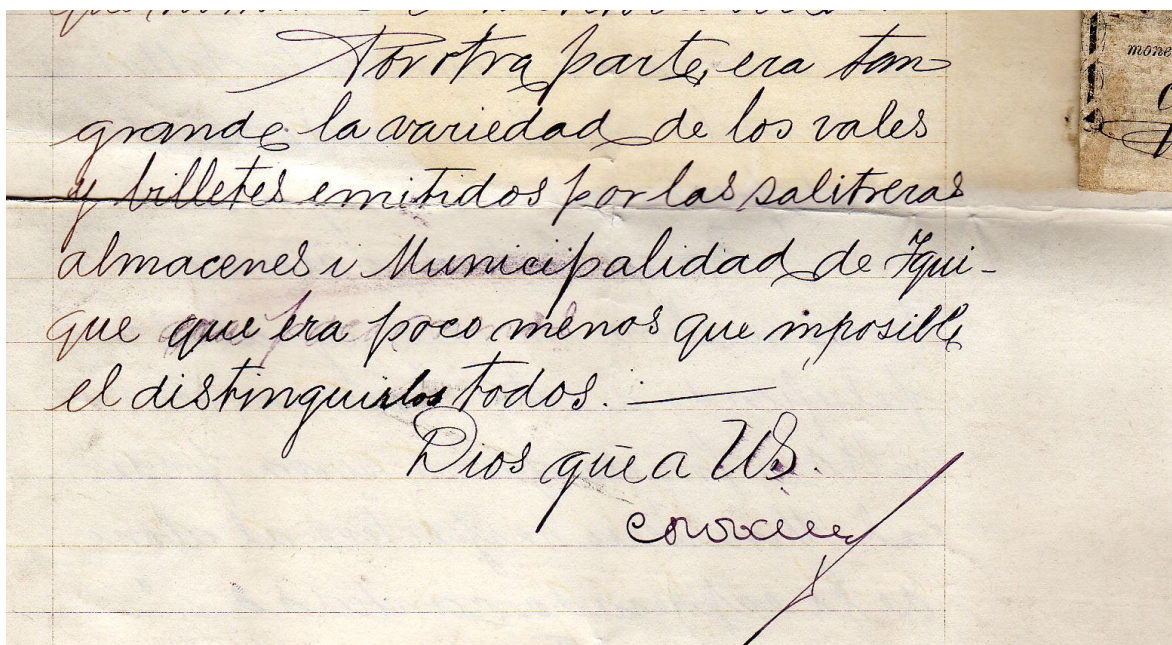 Por otra parte, era tan
grande la variedad de los vales
y billetes emitidos por las salitreras
almacenes i Municipalidad de Iqui-
que que era poco menos que imposible
el distinguirlos todos. —
Dios gūe a US.
mone